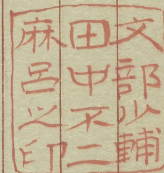 文部少輔
田中不二
麻呂之印